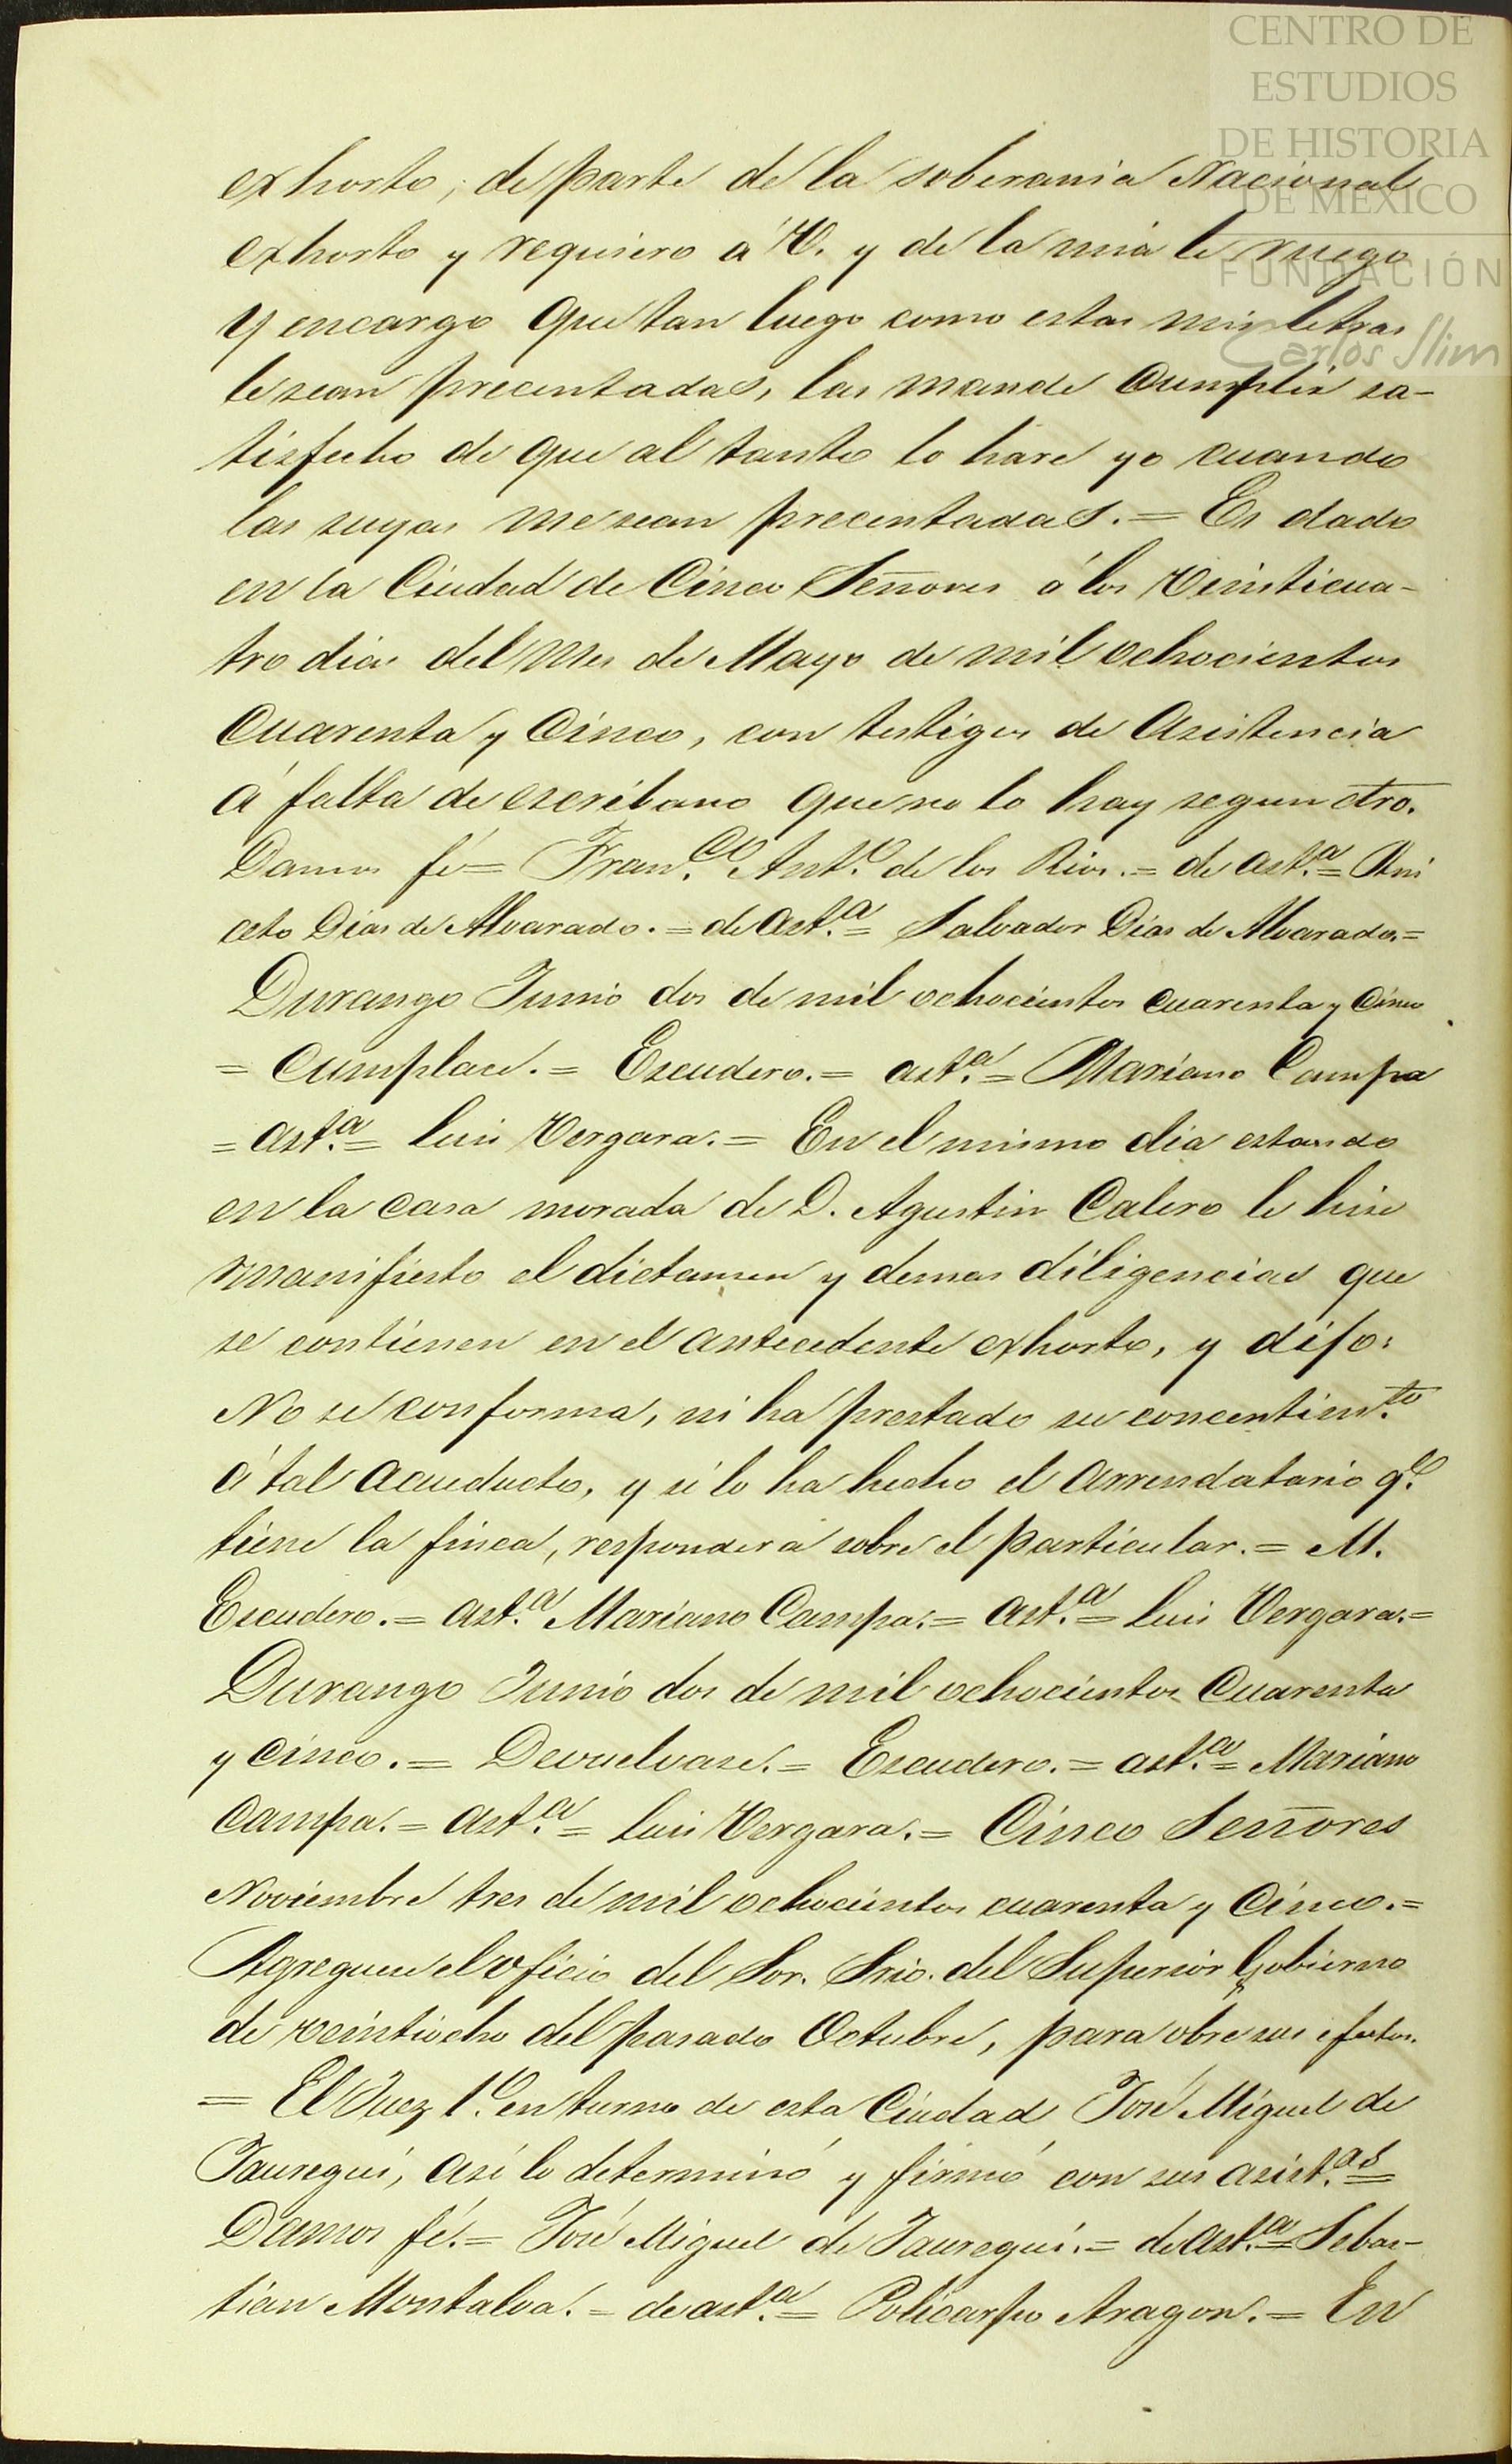 CENTRO DE
ESTUDIOS
DE HISTORIA
DE MÉXICO
FUNDACIÓN
Carlos Slim
exhorto, de parte de la soberania Nacional
exhorto y requiero á V. y de la mia le ruego
y encargo que tan luego como estas mis letras
le sean precentadas, las mande cumplir sa-
tisfecho de que al tanto lo haré yo cuando
las suyas me sean precentadas. = Es dado
en la Ciudad de Cinco Señores á los Veinticua-
tro dias del mes de Mayo de mil ochocientos
Cuarenta y Cinco, con testigos de Asistencia
á falta de escribano que no lo hay segun dro.
Damos fé = Fran.co Ant.o de los Rios. = de ast.a = Ani
ceto Dias de Alvarado. = de ast.a = Salvador Dias de Alvarado. =
Durango Junio dos de mil ochocientos cuarenta y Cinco
= Cumplace. = Escudero. = ast.a = Mariano Campa
= ast.a = Luis Vergara. = En el mismo dia estando
en la casa morada de D. Agustin Calero le hise
manifiesto el dictamen y demas diligencias que
se contienen en el antecedente exhorto, y dijo:
No se conforma, ni ha prestado su concentim.to
á tal acueducto, y si lo ha hecho el arrendatario q.e
tiene la finca, responderá sobre el particular. = M.
Escudero. = ast.a Mariano Campa. = ast.a = Luis Vergara. =
Durango Junio dos de mil ochocientos Cuarenta
y Cinco. = Devuelvase. = Escudero. = ast.a = Mariano
Campa. = ast.a = Luis Vergara. = Cinco Señores
Noviembre tres de mil ochocientos cuarenta y Cinco. =
Agreguese el oficio del Sor. Srio. del Superior Gobierno
de veintiocho del pasado Octubre, para obre sus efectos.
= El Juez 1.o en turno de esta Ciudad José Miguel de
Jauregui, asi lo determinó y firmó con sus asist.as =
Damos fé. = José Miguel de Jauregui. = de ast.a = Sebas-
tian Montalva. = de ast.a = Policarpo Aragon. = En